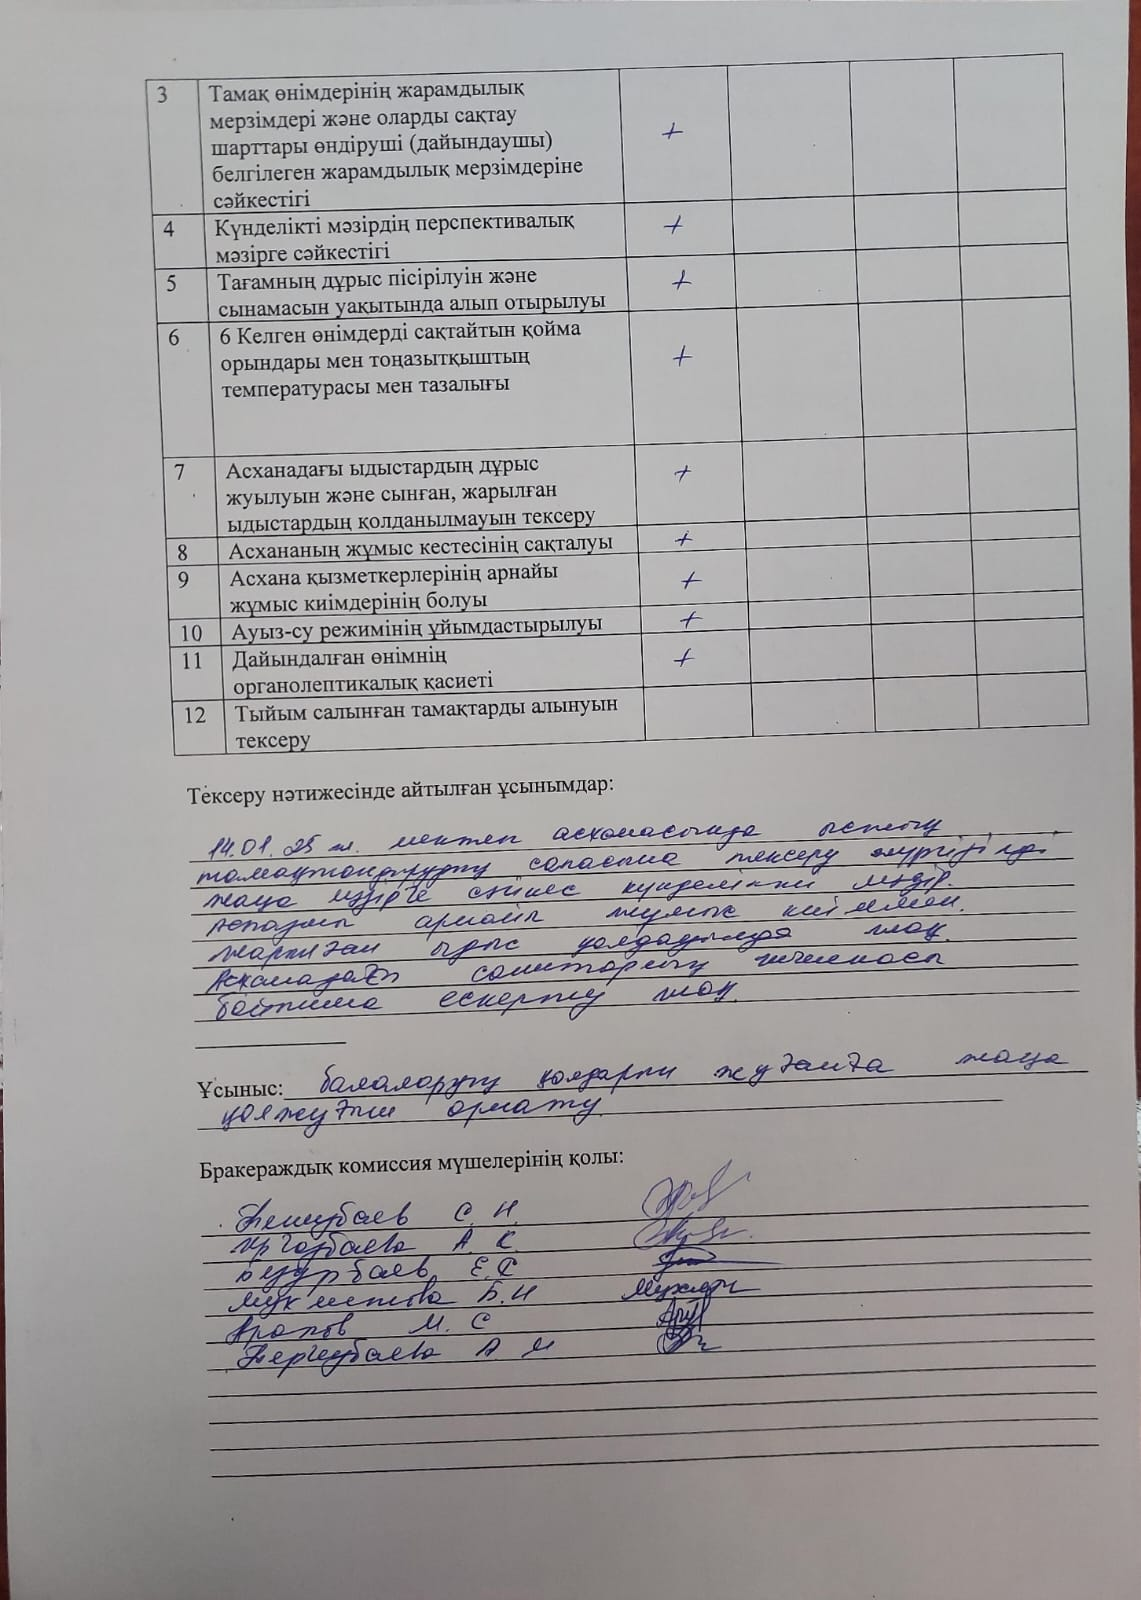 3 Тамақ өнімдерінің жарамдылық
мерзімдері және оларды сақтау
шарттары өндіруші (дайындаушы)
белгілеген жарамдылық мерзімдеріне
сәйкестігі +
4 Күнделікті мәзірдің перспективалық +
мәзірге сәйкестігі
5 Тағамның дұрыс пісірілуін және +
сынамасын уақытында алып отырылуы
6 6 Келген өнімдерді сақтайтын қойма
орындары мен тоңазытқыштың +
температурасы мен тазалығы
7 Асханадағы ыдыстардың дұрыс +
жуылуын және сынған, жарылған
ыдыстардың қолданылмауын тексеру
8 Асхананың жұмыс кестесінің сақталуы +
9 Асхана қызметкерлерінің арнайы +
жұмыс киімдерінің болуы
10 Ауыз-су режимінің ұйымдастырылуы +
11 Дайындалған өнімнің +
органолептикалық қасиеті
12 Тыйым салынған тамақтарды алынуын
тексеру
Тексеру нәтижесінде айтылған ұсынымдар:
14.01.25 ж. мектеп асханасында ыстық
тамақтандырудың сапасына тексеру жүргізілді
жаңа мәзірге сәйкес күнделікті мәзір.
аспазшы арнайы жұмыс киіммен.
жарылған ыдыс қолдануында жоқ.
Асханадағы санитарлық
ескерту жоқ.
Ұсыныс: балалардың қолдарын жууға жаңа
қолжуғыш орнату.
Бракераждық комиссия мүшелерінің қолы:
С. Н.
А. К.
Е.
Б.Н
М. С
А. М